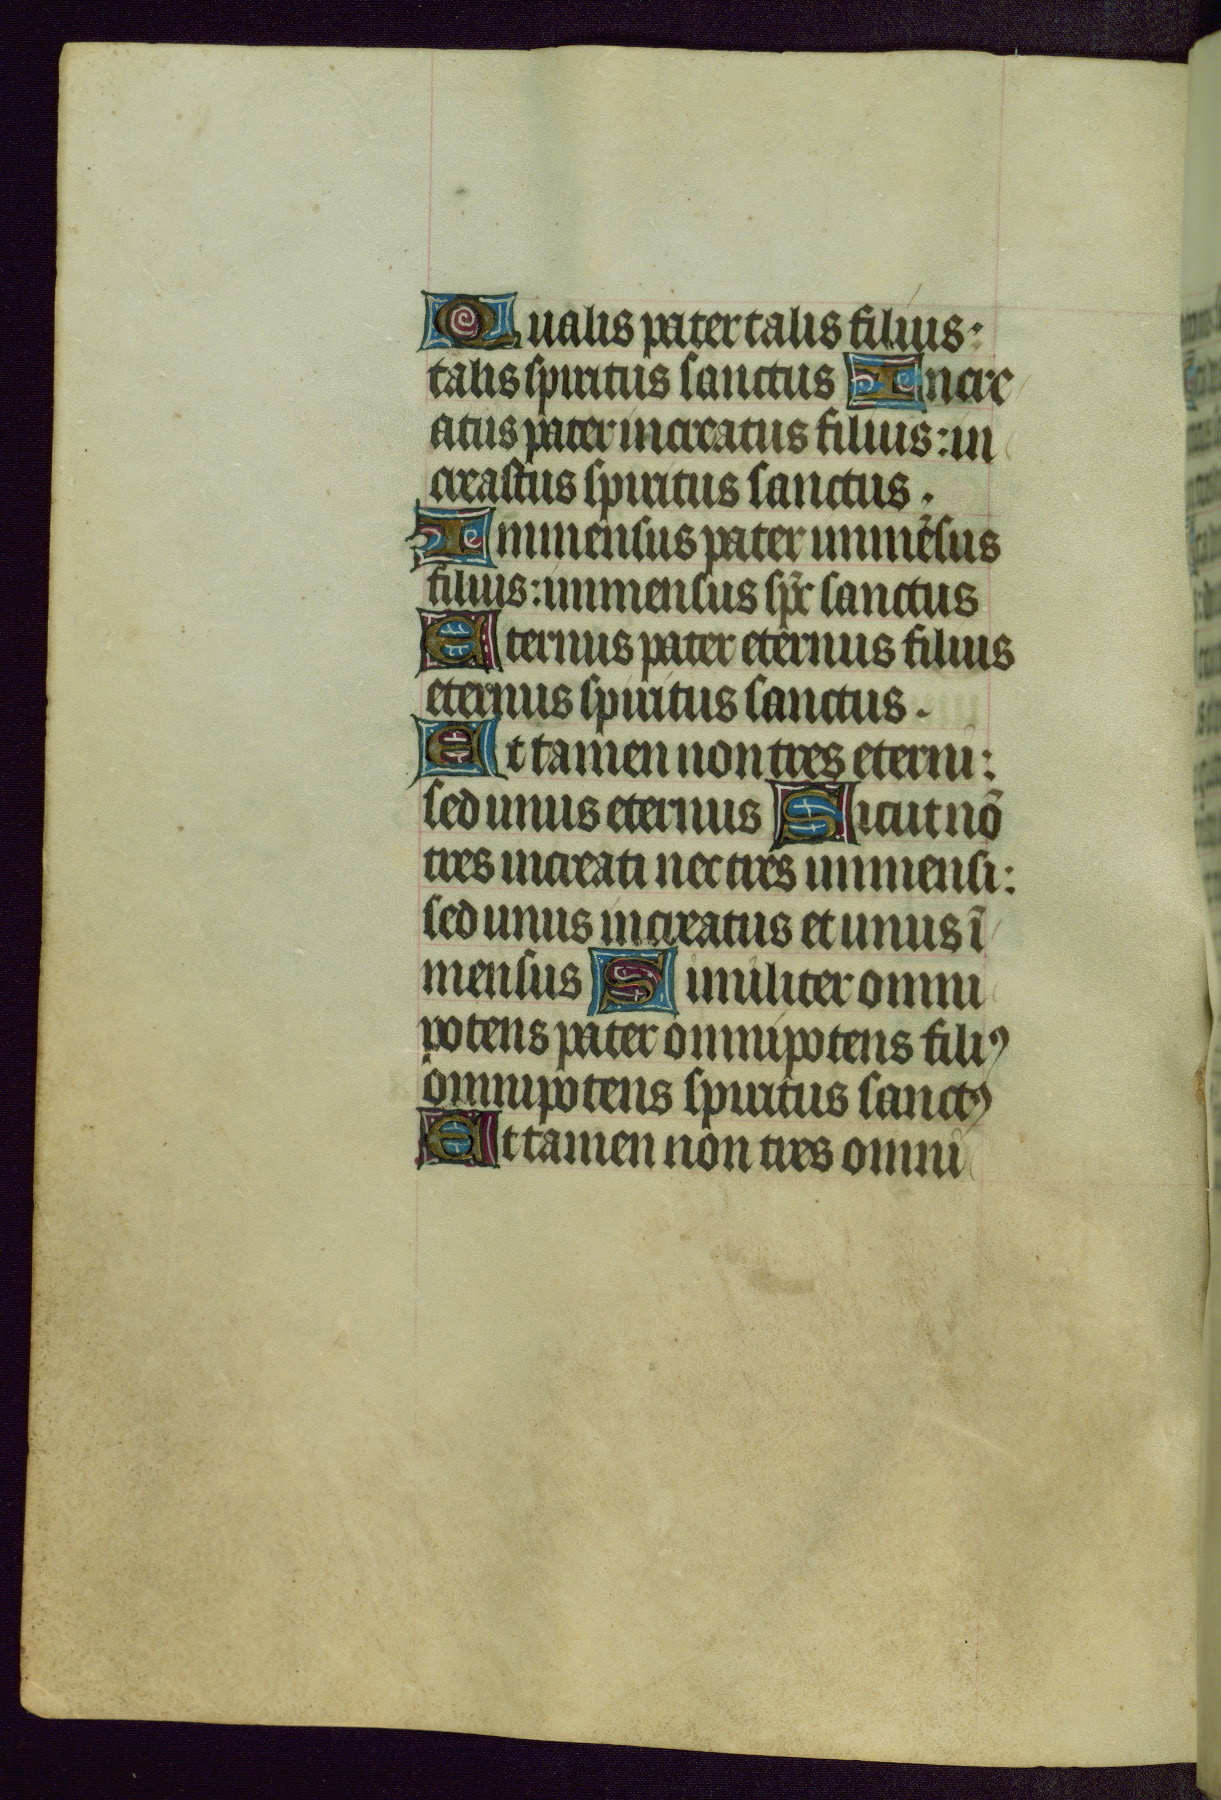 Qualis pater talis filius:
talis spiritus sanctus Incre
atus pater increatus filius: in
creastus spiritus sanctus.
Immensus pater immēsus
filius: immensus spc̄ sanctus
Eternus pater eternus filius
eternus spiritus sanctus.
Et tamen non tres eterni:
sed unus eternus Sicut nō
tres increati nec tres immensi:
sed unus increatus et unus ī
mensus Similiter omni
potens pater omnipotens filiꝰ
omnipotens spiritus sanctꝰ
Et tamen non tres omni